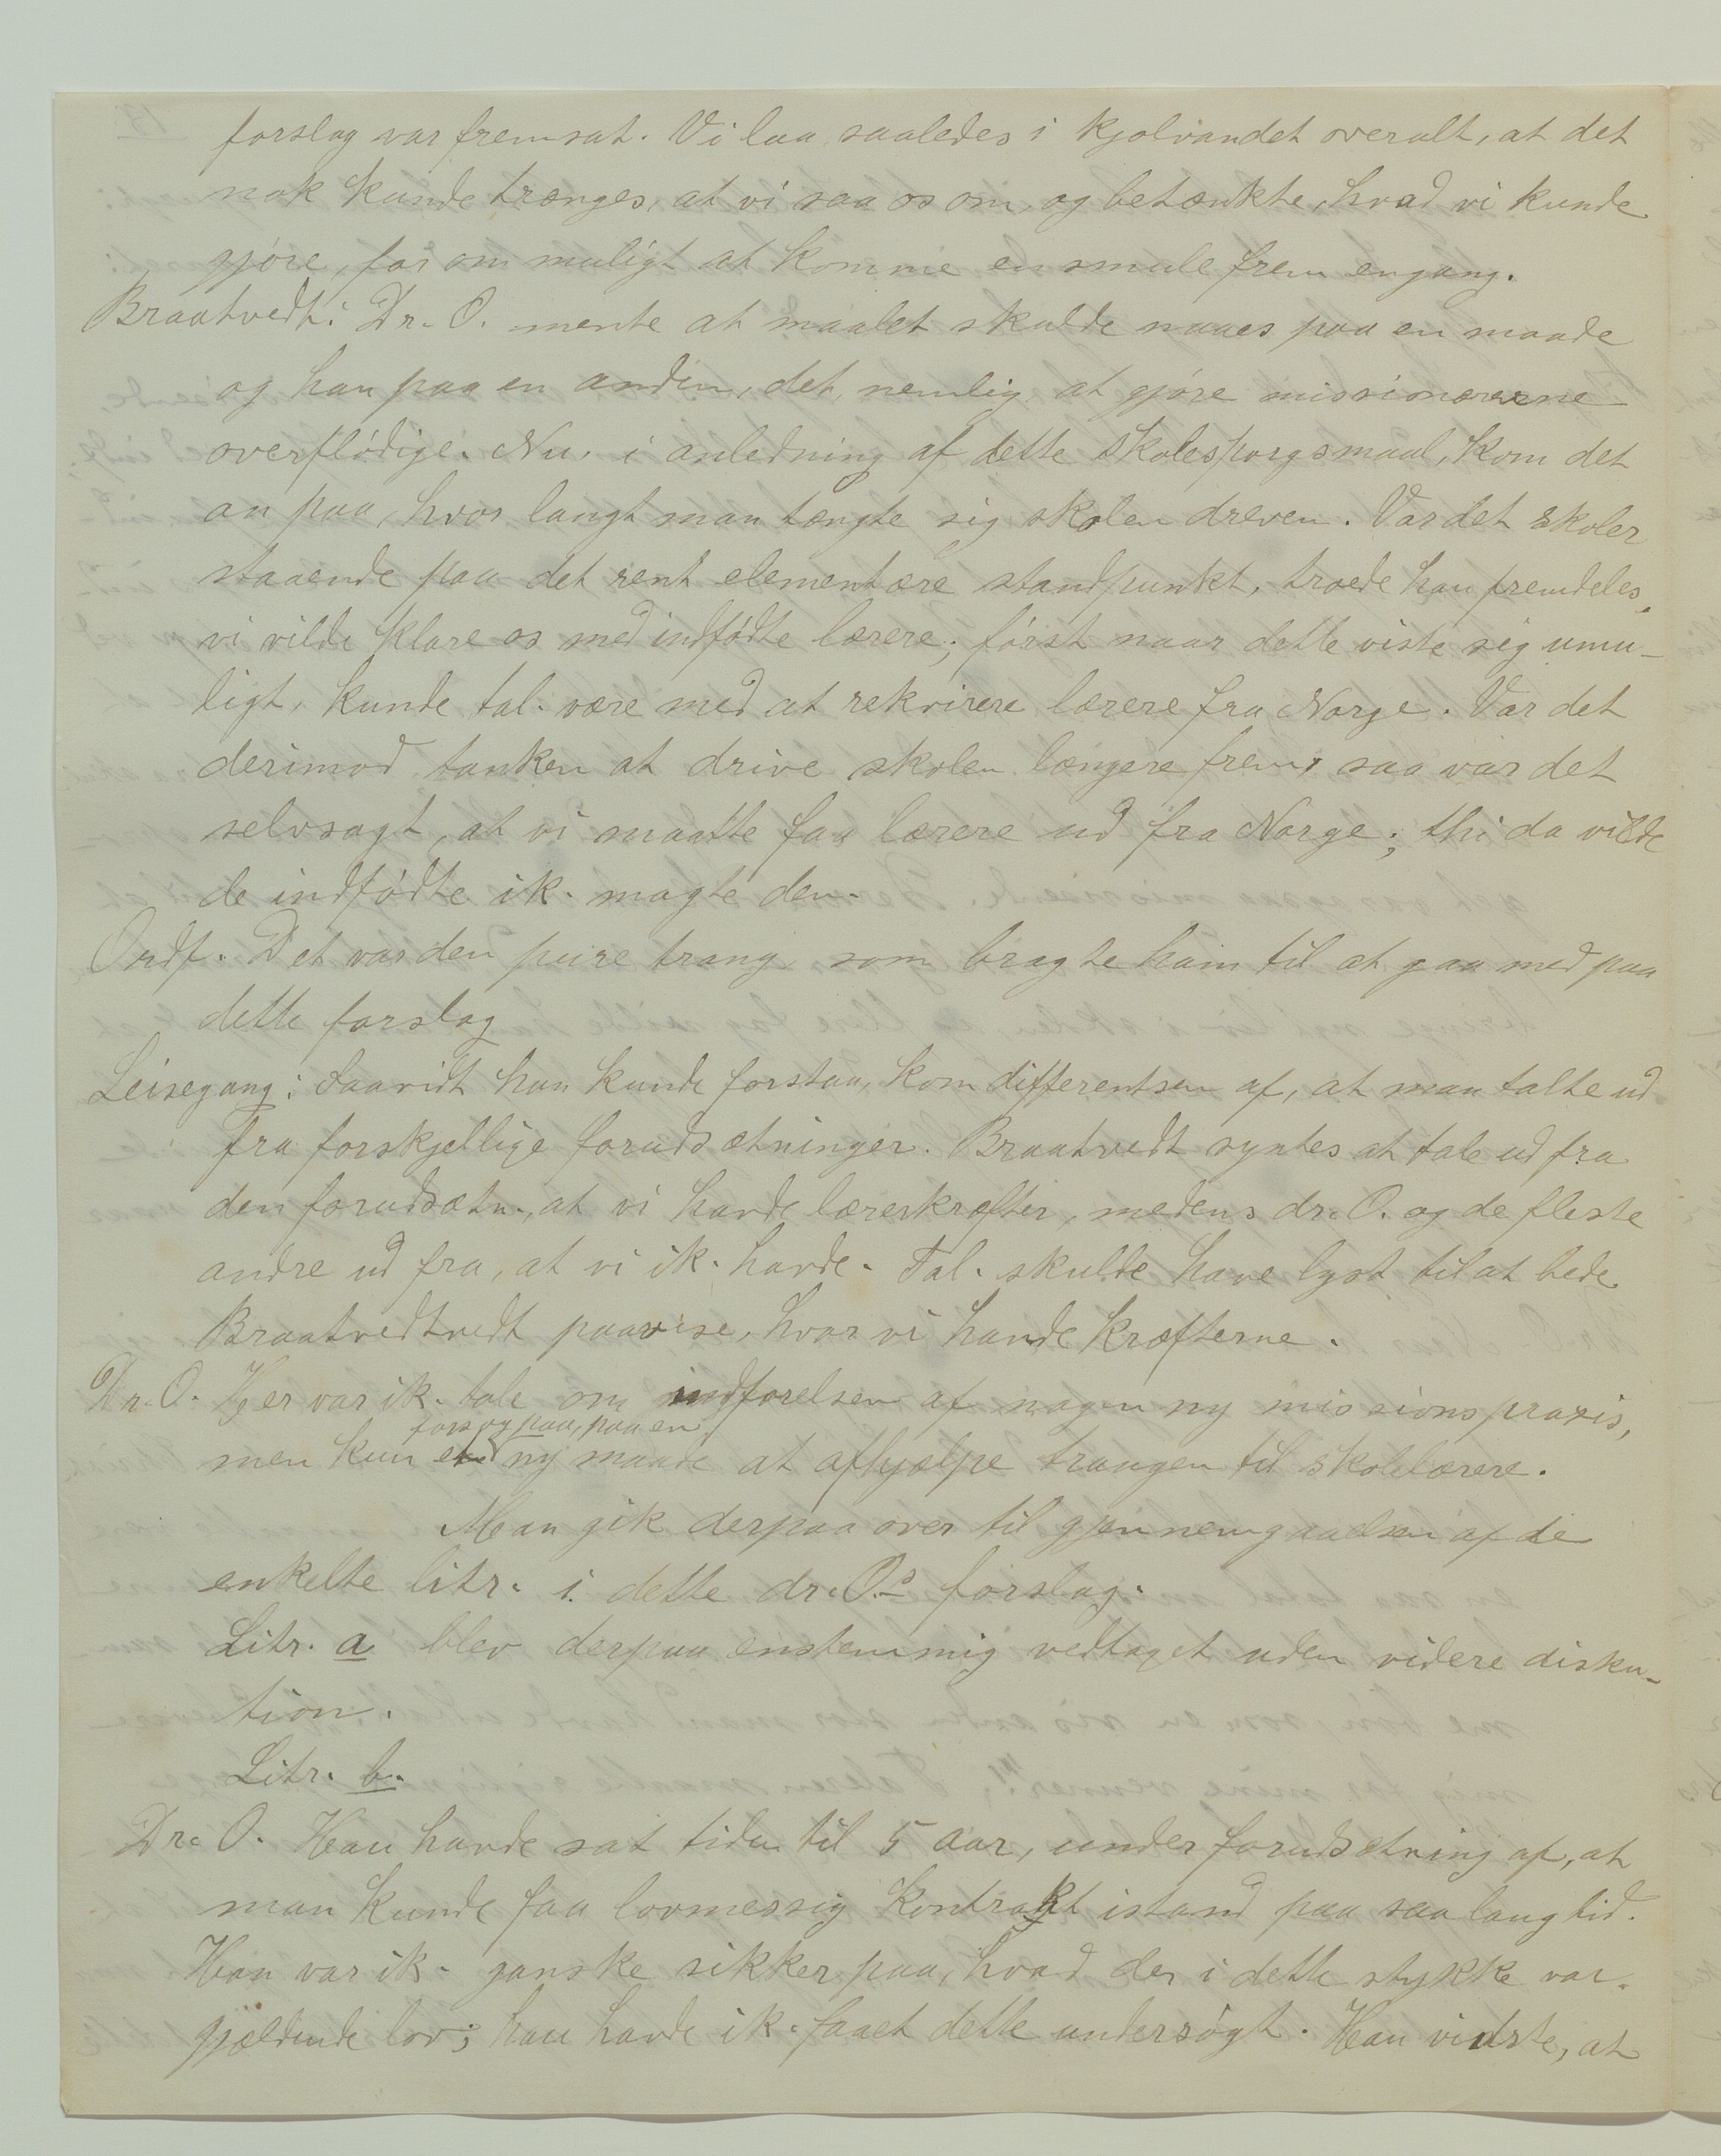 forslag var fremsat. Vi laa saaledes i kjølvandet overalt, at det
nok kunde trænges, at vi saa os om, og betænkte, hvad vi kunde
gjøre, for om muligt at komme en smule frem engang.
Braatvedt: Dr. O. mente at maalet skulde naaes paa en maade
og han paa en anden, det, nemlig, at gjøre missionærerne
overflødige. Nu, i anledning af dette skolespørgsmaal, kom det
an paa, hvor langt man tængte sig skolen dreven. Var det skoler
staaende paa det rent elementære standpunkt, troede han fremdeles,
vi vilde klare os med indfødte lærere; først naar dette viste sig umu-
ligt, kunde tal. være med at rekvirere lærere fra Norge. Var det
derimod tanken at drive skolen længere frem, saa var det
selvsagt, at vi maatte faa lærere ud fra Norge; thi da vilde
de indfødte ik. magte den.
Ordf. Det var den pure trang, som bragte ham til at gaa med paa
dette forslag
Leisegang: Saavidt han kunde forstaa, kom differentsen af, at man talte ud
fra forskjellige forudsætninger. Braatvedt syntes at tale ud fra
den forudsætn., at vi havde lærerkræfter, medens dr. O. og de fleste
andre ud fra, at vi ik. havde. Tal. skulde have lyst til at bede
Braatvedtvedt paavise, hvor vi havde kræfterne.
Dr. O. Her var ik. tale om indførelsen af nogen ny missionspraxis,
forsøg paa, paa en
men kun et ny maade at afhjælpe trangen til skolelærere.
Man gik derpaa over til gjennemgaaelsen af de
enkelte litr. i dette dr. O.s forslag.
Litr. a blev derpaa enstemmig vedtaget uden videre disku-
tion.
Litr. b.
Dr. O. Han havde sat tiden til 5 aar, under forudsætning af, at
man kunde faa lovmessig kontrakt istand paa saa lang tid.
Han var ik. ganske sikker paa, hvad der i dette stykke var
gjældende lov; han havde ik. faaet dette undersøgt. Han vidste, at